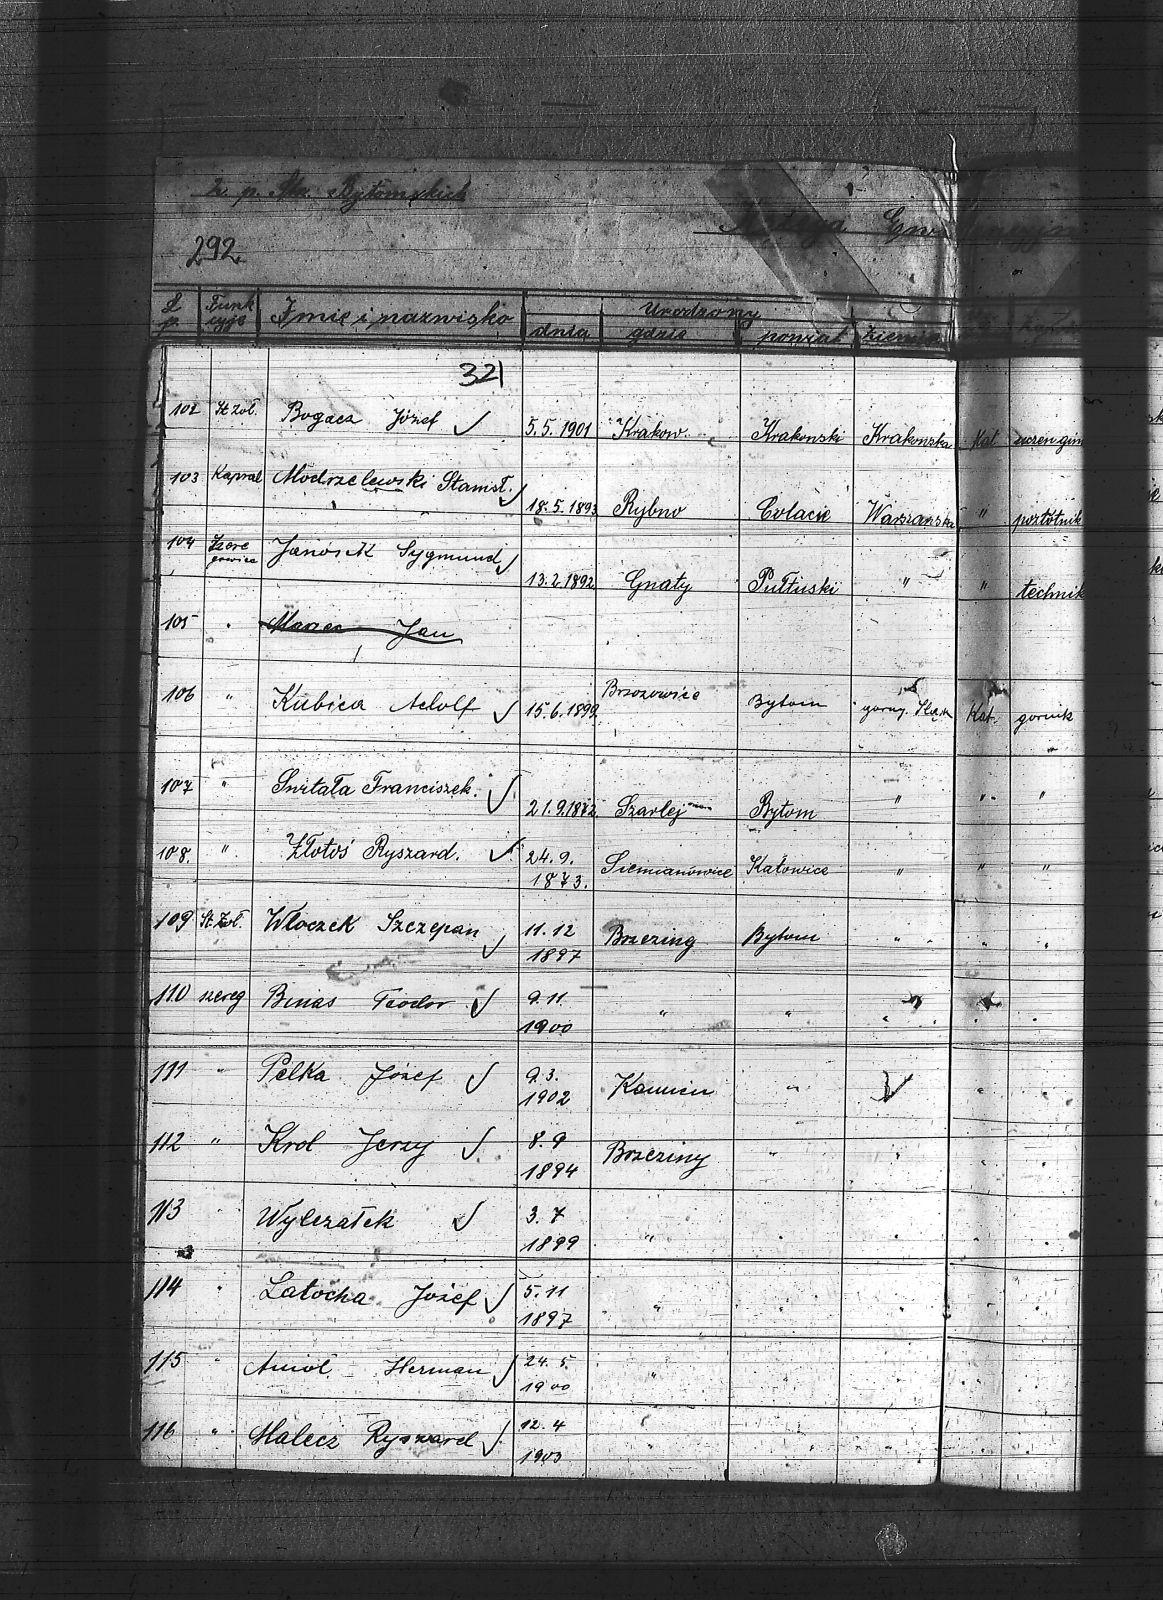 2. p. Bytomskich
292
L. p. Funkcyje Imię i nazwisko Urodzony
dnia gdzie powiat ziemia
321
102 St. żoł. Bogacz Józef 5.5.1901 Krakow Krakowski Krakowska Kat. uczen gim
103 Kapral Modrzelewski Stanisł. 18.5.1893 Rybno Warszawska "
104 Szeregowiec Janosik Sygmund 13.2.1892 Gnaty Pułtuski " " technik
105 " Jan
106 " Kubica Adolf 15.6.1899 Brzozowice Bytom gorny. Sląsk Kat. gornik
107 " Franciszek. 21.9.1872 Szarlej Bytom " " "
108. " Złotoś Ryszard. 24.9. 1873. Siemianowice Katowice " " "
109 St. Żoł. Włoczek Szczepan 11.12 1897 Brzeziny Bytom " " "
110 szereg Binias Teodor 9.11. 1900 " " " " "
111 " Pelka Józef 9.3. 1902 Kamien " " "
112 " Krol Jerzy 8.9 1894 Brzeziny " " " "
113 " Wylezałek 3.7 1899 " " " " "
114 " Latocha Józef 5.11 1897 " " " " "
115 " Anioł Herman 24.5. 1900 " " " " "
116 " Malecz Ryszard 12.4 1903 " " " " "